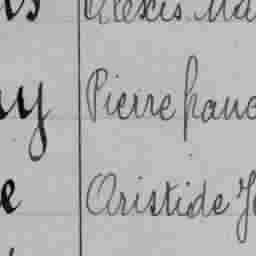 Alexis Ma
Pierre franc
Aristide J